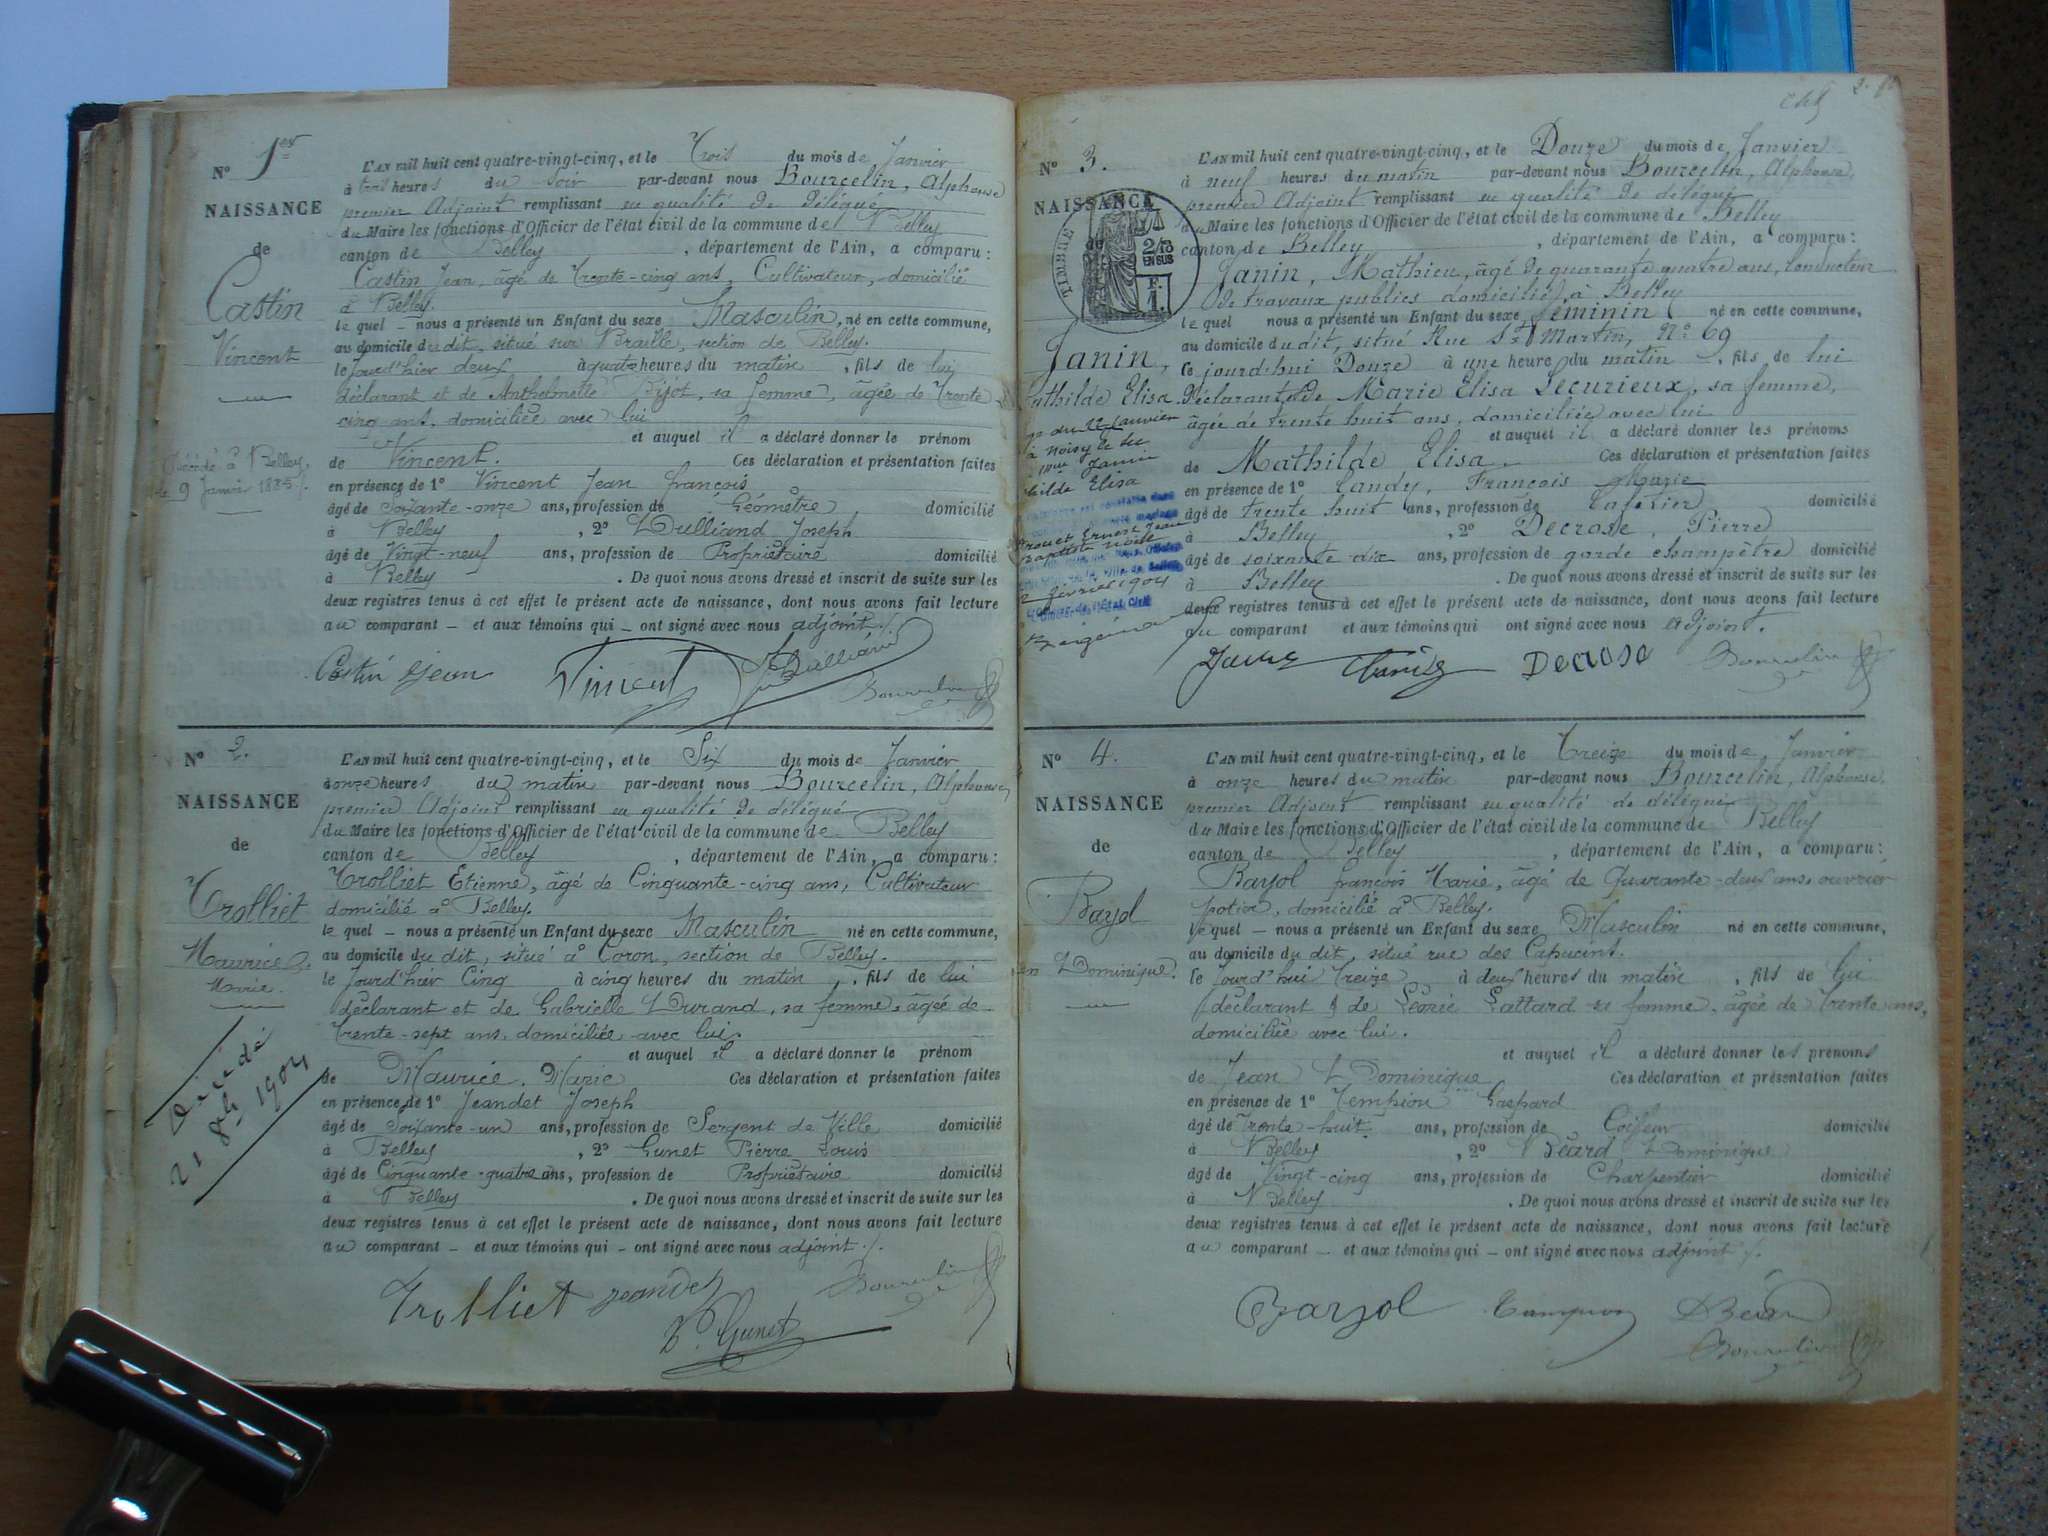 Nº 1er
NAISSANCE
de
Castin
Vincent
Décédé à Belley
le 9 Janvier 1885
L'AN mil huit cent quatre-vingt-cinq, et le Trois du mois de Janvier
à trois heures du soir par-devant nous Bourcelin, Alphonse
premier Adjoint remplissant en qualité de délégué
du Maire les fonctions d'Officier de l'état civil de la commune de Belley
canton de Belley, département de l'Ain, a comparu:
Castin Jean, âgé de trente-cinq ans, Cultivateur, domicilié
à Belley.
le quel – nous a présenté un Enfant du sexe Masculin, né en cette commune,
au domicile du dit, situé sur Braille, section de Belley.
le jourd'hier deux à quatre heures du matin, fils de lui
déclarant et de Anthelmette Bijot, sa femme, âgée de trente
cinq ans, domiciliée avec lui
et auquel il a déclaré donner le prénom
de Vincent. Ces déclaration et présentation faites
en présence de 1º Vincent Jean françois
âgé de soixante-onze ans, profession de Géomètre domicilié
à Belley, 2º Dulliand Joseph
âgé de Vingt-neuf ans, profession de Propriétaire domicilié
à Belley. De quoi nous avons dressé et inscrit de suite sur les
deux registres tenus à cet effet le présent acte de naissance, dont nous avons fait lecture
au comparant – et aux témoins qui – ont signé avec nous adjoint ./.
Castin Jean Vincent J Dulliand Bourcelin
Nº 2.
NAISSANCE
de
Trolliet
Maurice
Marie.
Décédé
21 8bre 1904
L'AN mil huit cent quatre-vingt-cinq, et le Six du mois de Janvier
à onze heures du matin par-devant nous Bourcelin, Alphonse,
premier Adjoint remplissant en qualité de délégué
du Maire les fonctions d'Officier de l'état civil de la commune de Belley
canton de Belley, département de l'Ain, a comparu:
Trolliet Etienne, âgé de Cinquante-cinq ans, Cultivateur
domicilié à Belley.
le quel – nous a présenté un Enfant du sexe Masculin né en cette commune,
au domicile du dit, situé à Coron, section de Belley.
le jourd'hier Cinq à cinq heures du matin, fils de lui
déclarant et de Gabrielle Durand, sa femme, âgée de
trente-sept ans, domiciliée avec lui.
et auquel il a déclaré donner le prénom
de Maurice, Marie Ces déclaration et présentation faites
en présence de 1º Jeandet Joseph
âgé de Soixante-un ans, profession de Sergent de Ville domicilié
à Belley, 2º Gunet Pierre Louis
âgé de Cinquante-quatre ans, profession de Propriétaire domicilié
à Belley. De quoi nous avons dressé et inscrit de suite sur les
deux registres tenus à cet effet le présent acte de naissance, dont nous avons fait lecture
au comparant – et aux témoins qui – ont signé avec nous adjoint ./.
Trolliet Jeandet Bourcelin
P. Gunet
Nº 3.
NAISSANCE
de
TIMBRE
2/10
EN SUS
F.
1.
Janin,
Mathilde Elisa
du 22 Janvier
à Noisy le Sec
Janin
Mathilde Elisa
Ernest Jean
Baptiste
février 1904
Officier de l'Etat Civil
L'AN mil huit cent quatre-vingt-cinq, et le Douze du mois de Janvier
à neuf heures du matin par-devant nous Bourcelin, Alphonse,
premier Adjoint remplissant en qualité de délégué
du Maire les fonctions d'Officier de l'état civil de la commune de Belley
canton de Belley, département de l'Ain, a comparu:
Janin, Mathieu, âgé de quarante quatre ans, Conducteur
de travaux publics domicilié à Belley
le quel nous a présenté un Enfant du sexe féminin né en cette commune,
au domicile du dit, situé Rue St Martin, Nº 69
ce jourd'hui Douze à une heure du matin, fils de lui
Déclarant & de Marie Elisa Lécurieux, sa femme,
âgée de trente huit ans, domiciliée avec lui
et auquel il a déclaré donner les prénoms
de Mathilde Elisa. Ces déclaration et présentation faites
en présence de 1º Candy, François Marie
âgé de trente huit ans, profession de Cafetier domicilié
à Belley, 2º Decrose, Pierre
âgé de soixante dix ans, profession de garde champêtre domicilié
à Belley. De quoi nous avons dressé et inscrit de suite sur les
deux registres tenus à cet effet le présent acte de naissance, dont nous avons fait lecture
au comparant et aux témoins qui ont signé avec nous adjoint.
Decrose Bourcelin
Nº 4.
NAISSANCE
de
Bayol
Jean Dominique.
L'AN mil huit cent quatre-vingt-cinq, et le Treize du mois de Janvier
à onze heures du matin par-devant nous Bourcelin, Alphonse,
premier Adjoint remplissant en qualité de délégué
du Maire les fonctions d'Officier de l'état civil de la commune de Belley
canton de Belley, département de l'Ain, a comparu:
Bayol françois Marie, âgé de Quarante-deux ans, ouvrier
potier, domicilié à Belley.
le quel – nous a présenté un Enfant du sexe Masculin né en cette commune,
au domicile du dit, situé rue des Capucins.
le jourd'hui treize à deux heures du matin, fils de lui
déclarant & de Léonie Lattard sa femme, âgée de trente ans,
domiciliée avec lui.
et auquel il a déclaré donner les prénoms
de Jean Dominique Ces déclaration et présentation faites
en présence de 1º Tempion Gaspard
âgé de trente-huit ans, profession de Coiffeur domicilié
à Belley, 2º Béard Dominique
âgé de Vingt-cinq ans, profession de Charpentier domicilié
à Belley. De quoi nous avons dressé et inscrit de suite sur les
deux registres tenus à cet effet le présent acte de naissance, dont nous avons fait lecture
au comparant – et aux témoins qui – ont signé avec nous adjoint ./.
Bayol Tampion D Béard
Bourcelin